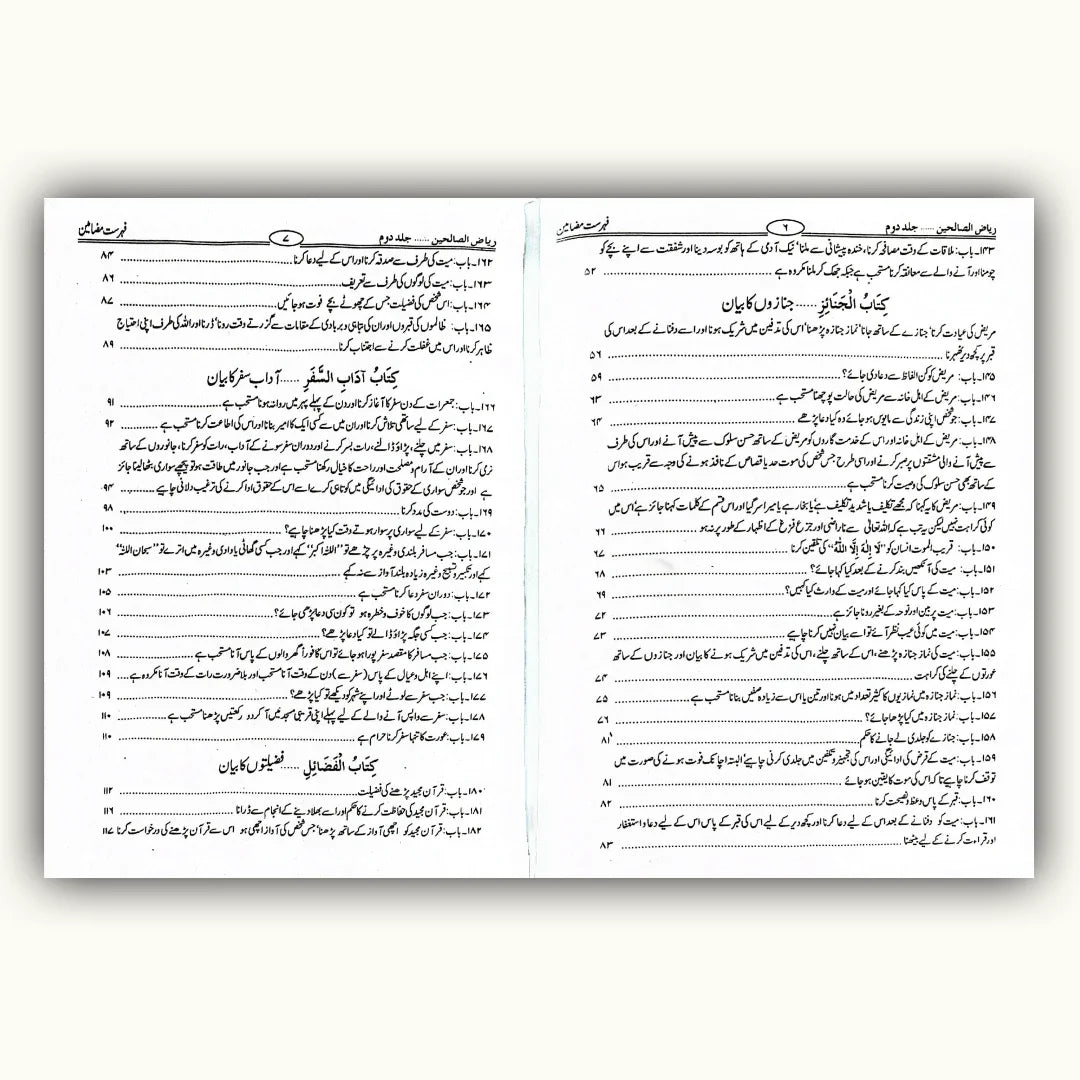 ریاض الصالحین ...... جلد دوم ۶ فہرست مضامین
۱۴۳۔باب: ملاقات کے وقت مصافحہ کرنا، خندہ پیشانی سے ملنا، نیک آدمی کے ہاتھ کو بوسہ دینا اور شفقت سے اپنے بچے کو
چومنا اور آنے والے سے معانقہ کرنا مستحب ہے جبکہ جھک کر ملنا مکروہ ہے ۵۲
کِتَابُ الْجَنَائِزِ ...... جنازوں کا بیان
مریض کی عیادت کرنا، جنازے کے ساتھ جانا، نماز جنازہ پڑھنا، اس کی تدفین میں شریک ہونا اور اسے دفنانے کے بعد اس کی
قبر پر کچھ دیر ٹھہرنا ۵۶
۱۴۵۔باب: مریض کو کن الفاظ سے دعا دی جائے؟ ۵۹
۱۴۶۔باب: مریض کے اہل خانہ سے مریض کی حالت پوچھنا مستحب ہے ۶۳
۱۴۷۔باب: جو شخص اپنی زندگی سے مایوس ہو جائے وہ کیا دعا پڑھے ۶۴
۱۴۸۔باب: مریض کے اہل خانہ اور اس کے خدمت گاروں کو مریض کے ساتھ حسن سلوک سے پیش آنے اور اس کی طرف
سے پیش آنے والی مشقتوں پر صبر کرنے اور اسی طرح جس شخص کی موت حد یا قصاص کے نافذ ہونے کی وجہ سے قریب ہو اس
کے ساتھ بھی حسن سلوک کی وصیت کرنا مستحب ہے ۶۵
۱۴۹۔باب: مریض کا یہ کہنا کہ مجھے تکلیف یا شدید تکلیف ہے یا بخار ہے یا میرا سر گیا اور اس قسم کے کلمات کہنا جائز ہے، اس میں
کوئی کراہت نہیں لیکن یہ تب ہے کہ اللہ تعالی سے ناراضی اور جزع فزع کے اظہار کے طور پر نہ ہو ۶۶
۱۵۰۔باب: قریب الموت انسان کو ”لَا اِلٰهَ اِلَّا اللّٰهُ“ کی تلقین کرنا ۶۷
۱۵۱۔باب: میت کی آنکھیں بند کرنے کے بعد کیا کہا جائے؟ ۶۸
۱۵۲۔باب: میت کے پاس کیا کہا جائے اور میت کے وارث کیا کہیں؟ ۶۹
۱۵۳۔باب: میت پر بین اور نوحہ کے بغیر رونا جائز ہے ۷۲
۱۵۴۔باب: میت میں کوئی عیب نظر آئے تو اسے بیان نہیں کرنا چاہیے ۷۳
۱۵۵۔باب: میت کی نماز جنازہ پڑھنے، اس کے ساتھ چلنے، اس کی تدفین میں شریک ہونے کا بیان اور جنازوں کے ساتھ
عورتوں کے چلنے کی کراہت ۷۴
۱۵۶۔باب: نماز جنازہ میں نمازیوں کا کثیر تعداد میں ہونا اور تین یا اس سے زیادہ صفیں بنانا مستحب ہے ۷۵
۱۵۷۔باب: نماز جنازہ میں کیا پڑھا جائے؟ ۷۶
۱۵۸۔باب: جنازے کو جلدی لے جانے کا حکم ۸۱
۱۵۹۔باب: میت کے قرض کی ادائیگی اور اس کی تجہیز و تکفین میں جلدی کرنی چاہیے البتہ اچانک فوت ہونے کی صورت میں
توقف کرنا چاہیے تاکہ اس کی موت کا یقین ہو جائے ۸۱
۱۶۰۔باب: قبر کے پاس وعظ و نصیحت کرنا ۸۲
۱۶۱۔باب: میت کو دفنانے کے بعد اس کے لیے دعا کرنا اور کچھ دیر کے لیے اس کی قبر کے پاس اس کے لیے دعا و استغفار
اور قراءت کرنے کے لیے بیٹھنا ۸۳
ریاض الصالحین ...... جلد دوم ۷ فہرست مضامین
۱۶۲۔باب: میت کی طرف سے صدقہ کرنا اور اس کے لیے دعا کرنا ۸۴
۱۶۳۔باب: میت کی لوگوں کی طرف سے تعریف ۸۶
۱۶۴۔باب: اس شخص کی فضیلت جس کے چھوٹے بچے فوت ہو جائیں ۸۷
۱۶۵۔باب: ظالموں کی قبروں اور ان کی تباہی و بربادی کے مقامات سے گزرتے وقت رونا، ڈرنا اور اللہ کی طرف اپنی احتیاج
ظاہر کرنا اور اس میں غفلت کرنے سے اجتناب کرنا ۸۹
کِتَابُ آدَابِ السَّفَرِ ...... آداب سفر کا بیان
۱۶۶۔باب: جمعرات کے دن سفر کا آغاز کرنا اور دن کے پہلے پہر میں روانہ ہونا مستحب ہے ۹۱
۱۶۷۔باب: سفر کے لیے ساتھی تلاش کرنا اور ان میں سے کسی ایک کا امیر بنانا اور اس کی اطاعت کرنا مستحب ہے ۹۲
۱۶۸۔باب: سفر میں چلنے، پڑاؤ ڈالنے، رات بسر کرنے اور دوران سفر سونے کے آداب، رات کو سفر کرنا، جانوروں کے ساتھ
نرمی کرنا اور ان کے آرام و مصلحت اور راحت کا خیال رکھنا مستحب ہے اور جب جانور میں طاقت ہو تو پیچھے سواری بٹھا لینا جائز
ہے اور جو شخص سواری کے حقوق کی ادائیگی میں کوتاہی کرے اسے اس کے حقوق ادا کرنے کی ترغیب دلانی چاہیے ۹۴
۱۶۹۔باب: دوست کی مدد کرنا ۹۸
۱۷۰۔باب: سفر کے لیے سواری پر سوار ہوتے وقت کیا پڑھنا چاہیے؟ ۱۰۰
۱۷۱۔باب: جب مسافر بلندی وغیرہ پر چڑھے تو ”اللہ اکبر“ کہے اور جب کسی گھاٹی یا وادی وغیرہ میں اترے تو ”سبحان اللہ“
کہے اور تکبیر و تسبیح وغیرہ زیادہ بلند آواز سے نہ کہے ۱۰۳
۱۷۲۔باب: دوران سفر دعا کرنا مستحب ہے ۱۰۵
۱۷۳۔باب: جب لوگوں کا خوف و خطرہ ہو تو کون سی دعا پڑھی جائے؟ ۱۰۶
۱۷۴۔باب: جب کسی جگہ پڑاؤ ڈالے تو کیا دعا پڑھے؟ ۱۰۷
۱۷۵۔باب: جب مسافر کا مقصد سفر پورا ہو جائے تو اس کا فوراً گھر والوں کے پاس آنا مستحب ہے ۱۰۸
۱۷۶۔باب: اپنے اہل و عیال کے پاس (سفر سے) دن کے وقت آنا مستحب اور بلا ضرورت رات کے وقت آنا مکروہ ہے ۱۰۹
۱۷۷۔باب: جب سفر سے لوٹے اور اپنے شہر کو دیکھے تو کیا پڑھے؟ ۱۰۹
۱۷۸۔باب: سفر سے واپس آنے والے کے لیے پہلے اپنی قریبی مسجد میں آ کر دو رکعتیں پڑھنا مستحب ہے ۱۱۰
۱۷۹۔باب: عورت کا تنہا سفر کرنا حرام ہے ۱۱۰
کِتَابُ الْفَضَائِلِ ...... فضیلتوں کا بیان
۱۸۰۔باب: قرآن مجید پڑھنے کی فضیلت ۱۱۲
۱۸۱۔باب: قرآن مجید کی حفاظت کرنے کا حکم اور اسے بھلا دینے کے انجام سے ڈرانا ۱۱۶
۱۸۲۔باب: قرآن مجید کو اچھی آواز کے ساتھ پڑھنا، جس شخص کی آواز اچھی ہو اس سے قرآن پڑھنے کی درخواست کرنا ۱۱۷